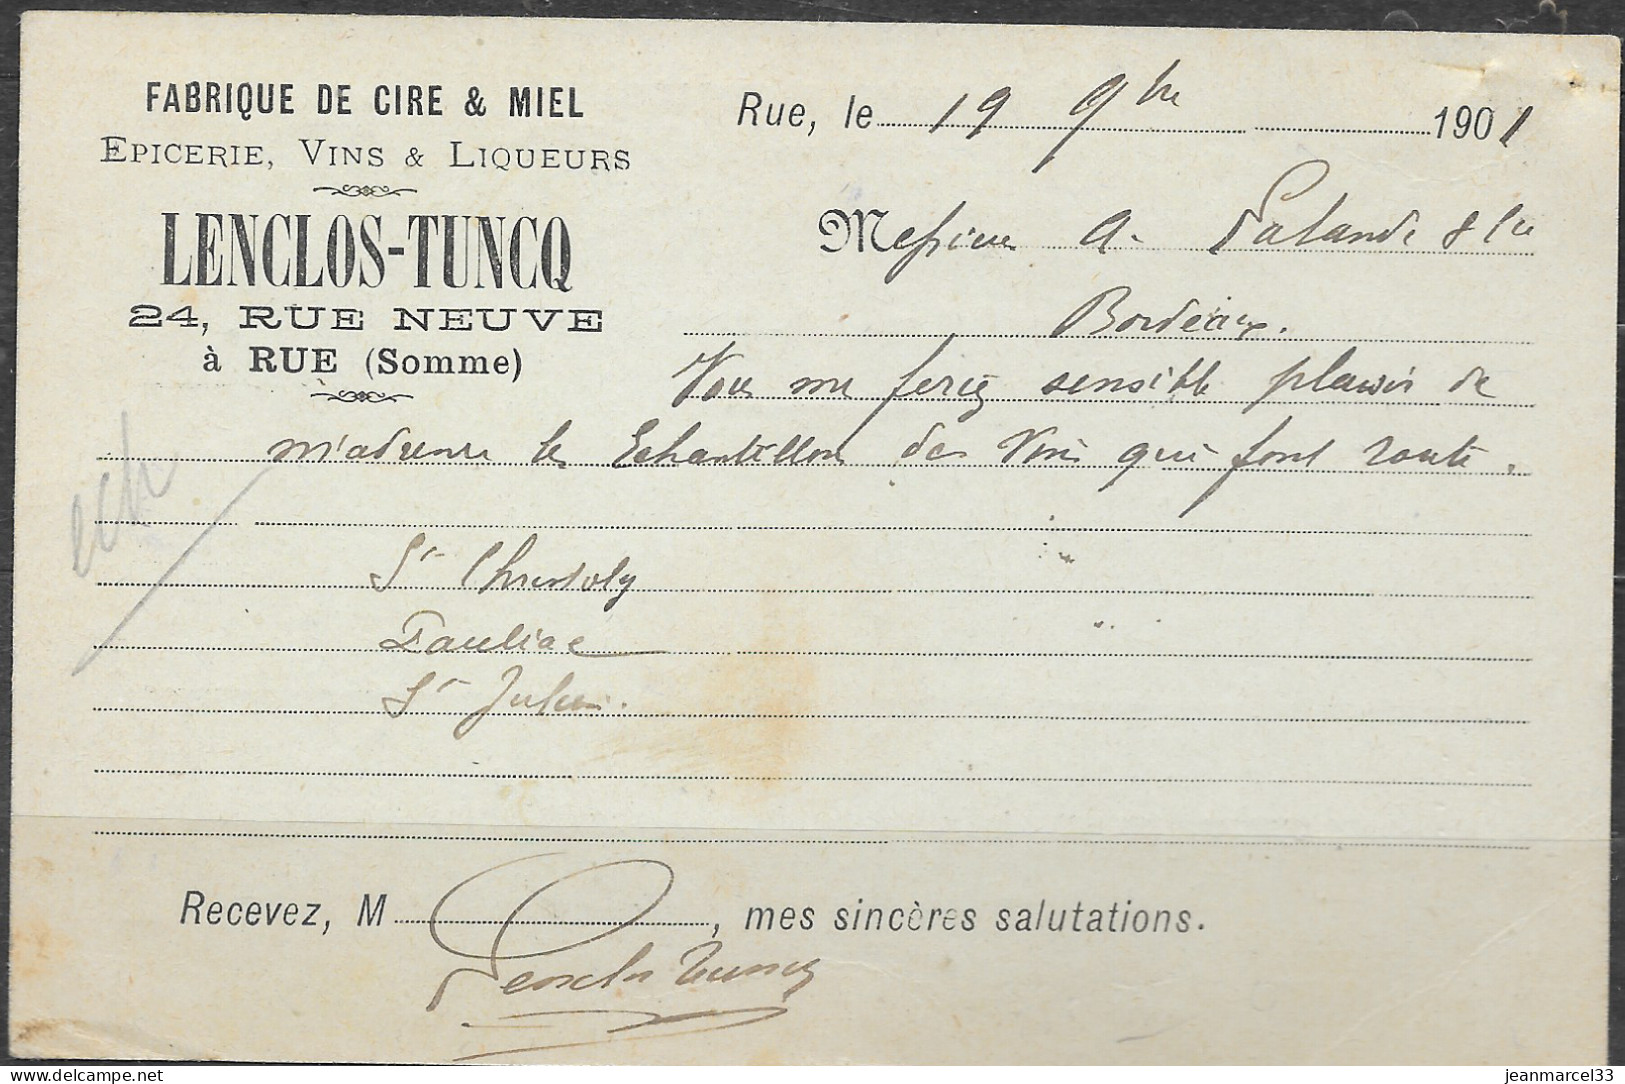 FABRIQUE DE CIRE & MIEL
EPICERIE, VINS & LIQUEURS
LENCLOS-TUNCQ
24, RUE NEUVE
à RUE (Somme)
Rue, le 19 9bre 1901
Messieurs A. Lalande & Cie
Bordeaux.
Vous me ferez sensible plaisir de
m'adresser les Echantillons des Vins qui font route.
ech
St Christoly
Pauliac
St Julien.
Recevez, M , mes sincères salutations.
Lenclos Tuncq
jeanmarcel33